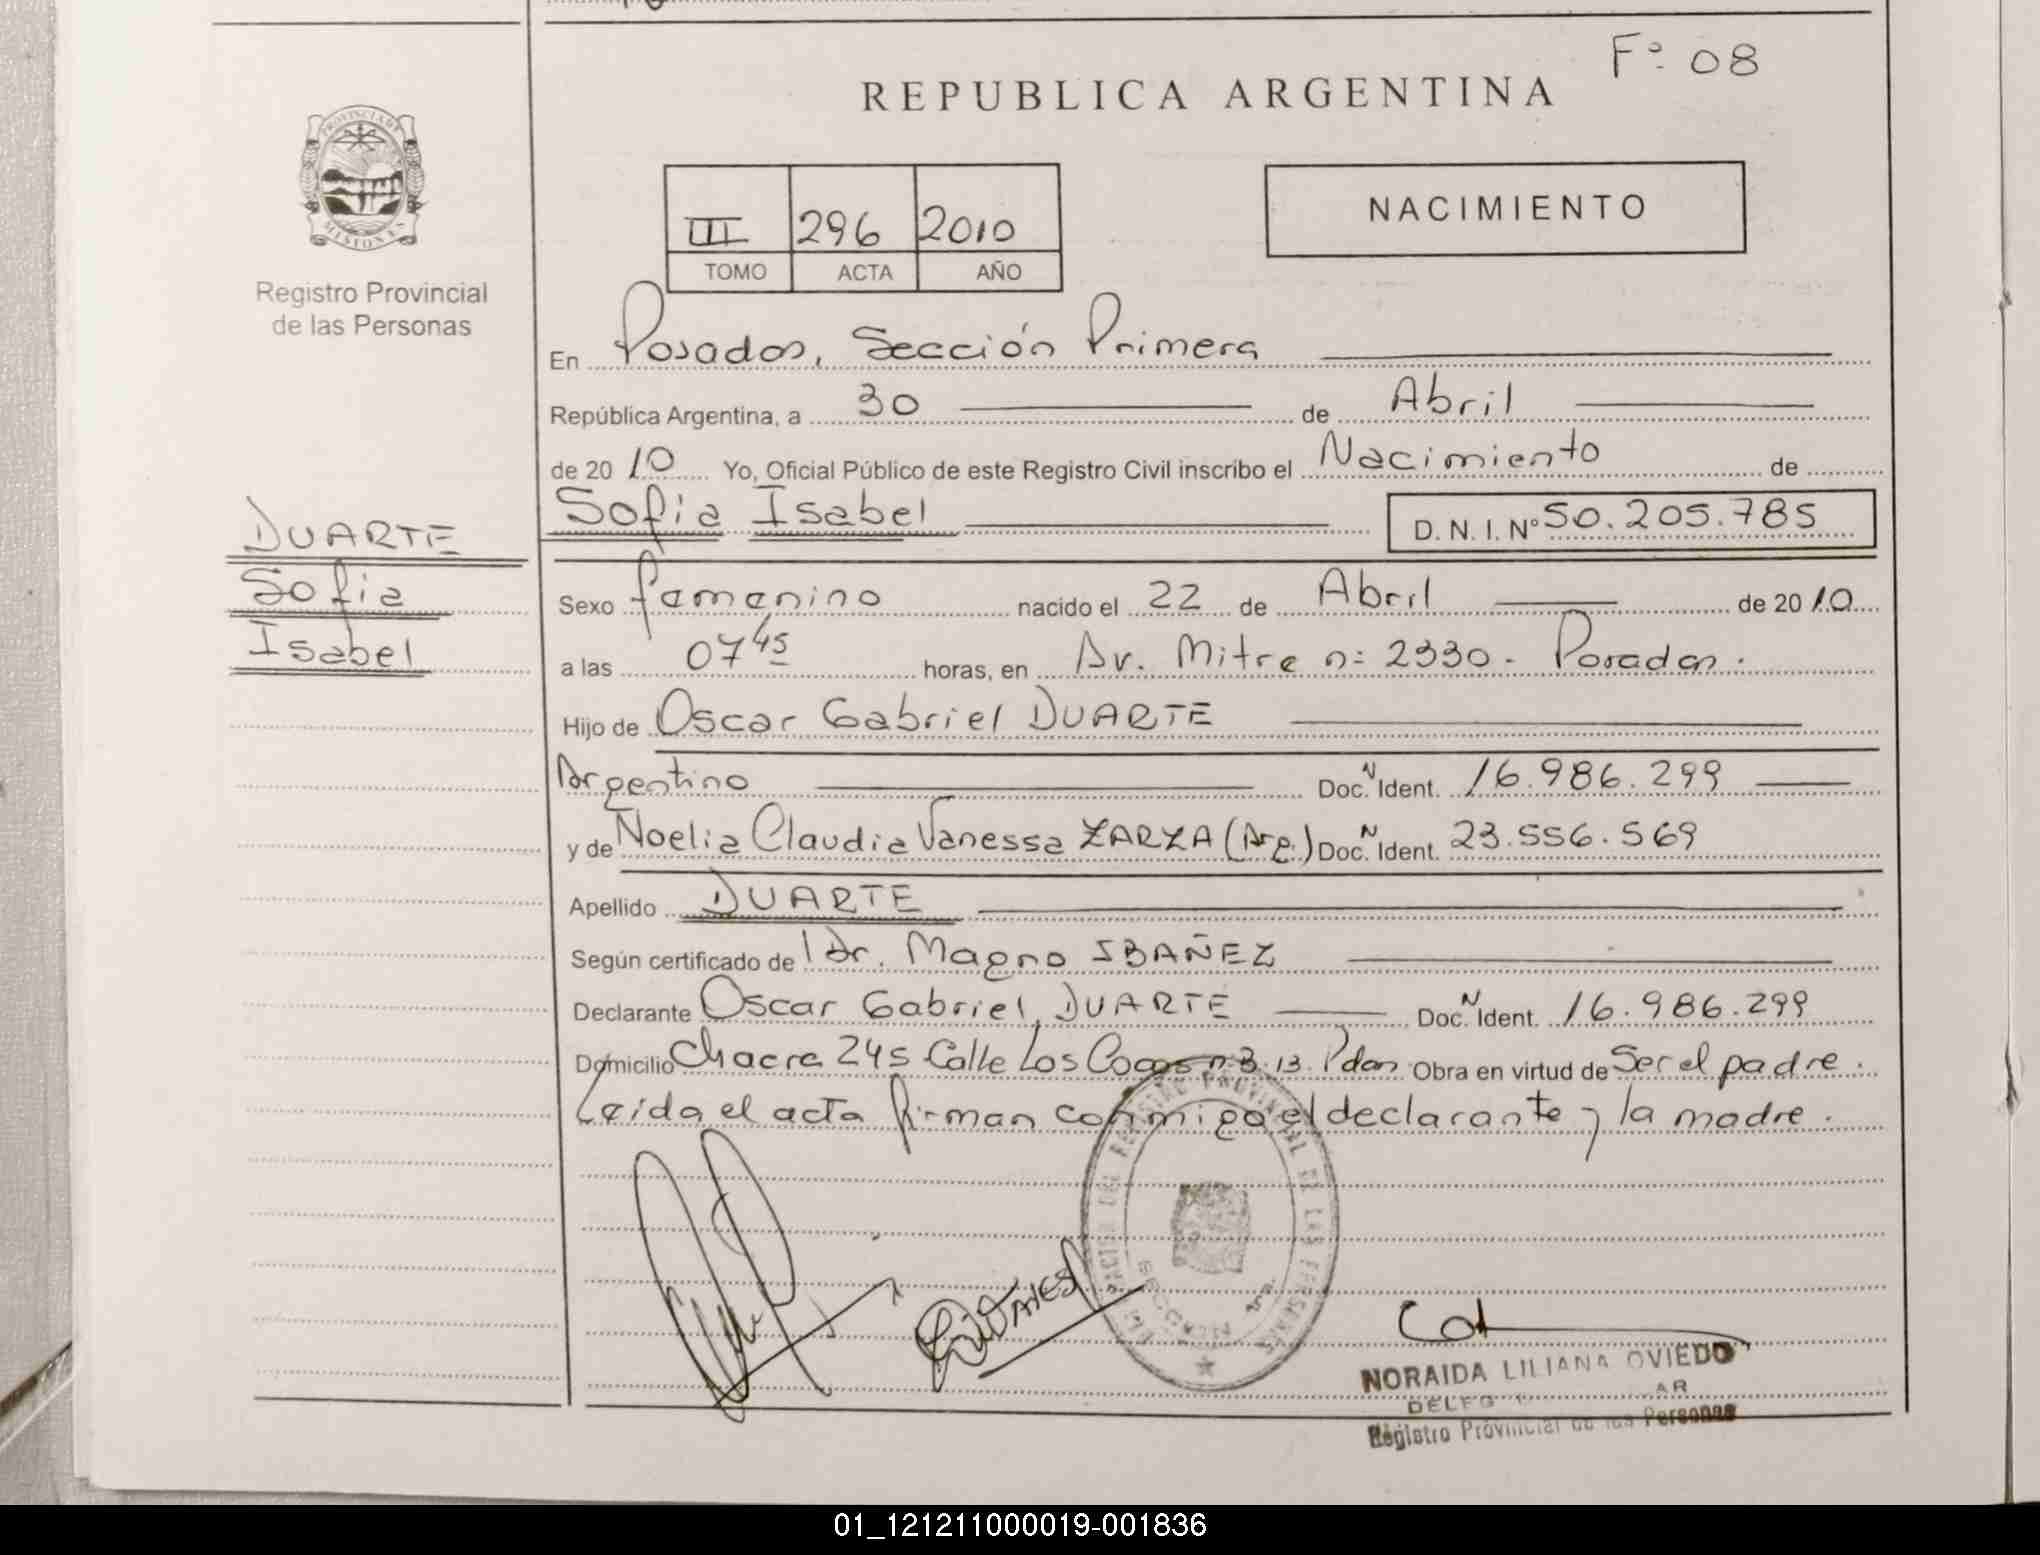 Fº 08
REPUBLICA ARGENTINA
PROVINCIA DE
MISIONES
Registro Provincial
de las Personas
III 296 2010
TOMO ACTA AÑO
NACIMIENTO
En Posadas, Sección Primera
República Argentina, a 30 de Abril
de 20 10 Yo, Oficial Público de este Registro Civil inscribo el Nacimiento de
Sofia Isabel D.N.I. Nº 50.205.785
DUARTE
Sofia
Isabel
Sexo femenino nacido el 22 de Abril de 20 10
a las 07 45 horas, en Av. Mitre nº 2330 - Posadas.
Hijo de Oscar Gabriel DUARTE
Argentino Doc. N Ident. 16.986.299
y de Noelia Claudia Vanessa ZARZA (Arg.) Doc. N Ident. 23.556.569
Apellido DUARTE
Según certificado de Dr. Magno IBAÑEZ
Declarante Oscar Gabriel DUARTE Doc. N Ident. 16.986.299
Domicilio Chacra 245 Calle Los Cocos 13 Pdas Obra en virtud de Ser el padre.
Leída el acta firman conmigo el declarante y la madre.
REGISTRO PROVINCIAL DE LAS PERSONAS
SECCION 1ra.
NORAIDA LILIANA OVIEDO
Registro Provincial de las Personas
01_121211000019-001836